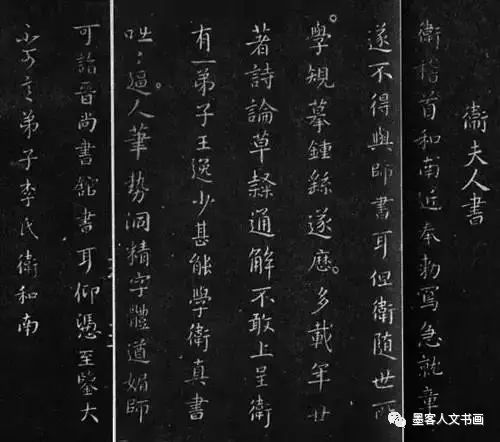 衛夫人書
衛稽首和南近奉勑寫急就章
遂不得與師書耳但衛隨世所
學規摹鍾繇遂歷多載年廿
著詩論草隸通解不敢上呈衛
有一弟子王逸少甚能學衛真書
咄咄逼人筆勢洞精字體遒媚師
可詣晉尚書館書耳仰憑至鑒大
不可言弟子李氏衛和南
墨客人文书画